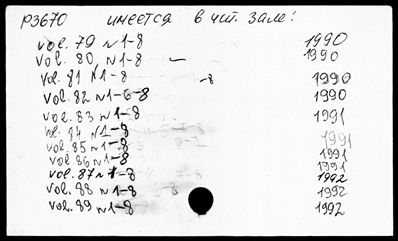 P3670 имеется в чит. зале:
vol. 79 N1-8 1990
vol. 80 N1-8 — 1990
vol. 81 N1-8 -8 1990
vol. 82 N1-6-8 1990
vol. 83 N1-8 1991
vol. 84 N1-8 1991
vol. 85 N1-8 1991
vol. 86 N1-8 1991
vol. 87 N1-8 1992
vol. 88 N1-8 1992
vol. 89 N1-8 1992